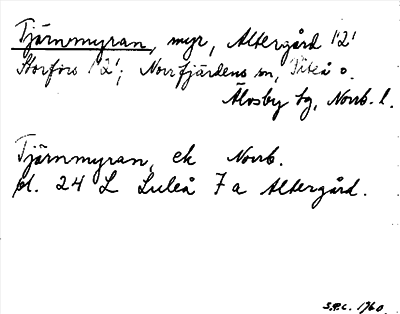 Tjärnmyran, myr, Altergård 1²1
Storfors 1²1; Norrfjärdens sn, Piteå o.
Älvsby tg, Norrb. l.
Tjärnmyran, ek Norrb.
bl. 24 L Luleå 7 a Altergård.
S.P.C. 1960.